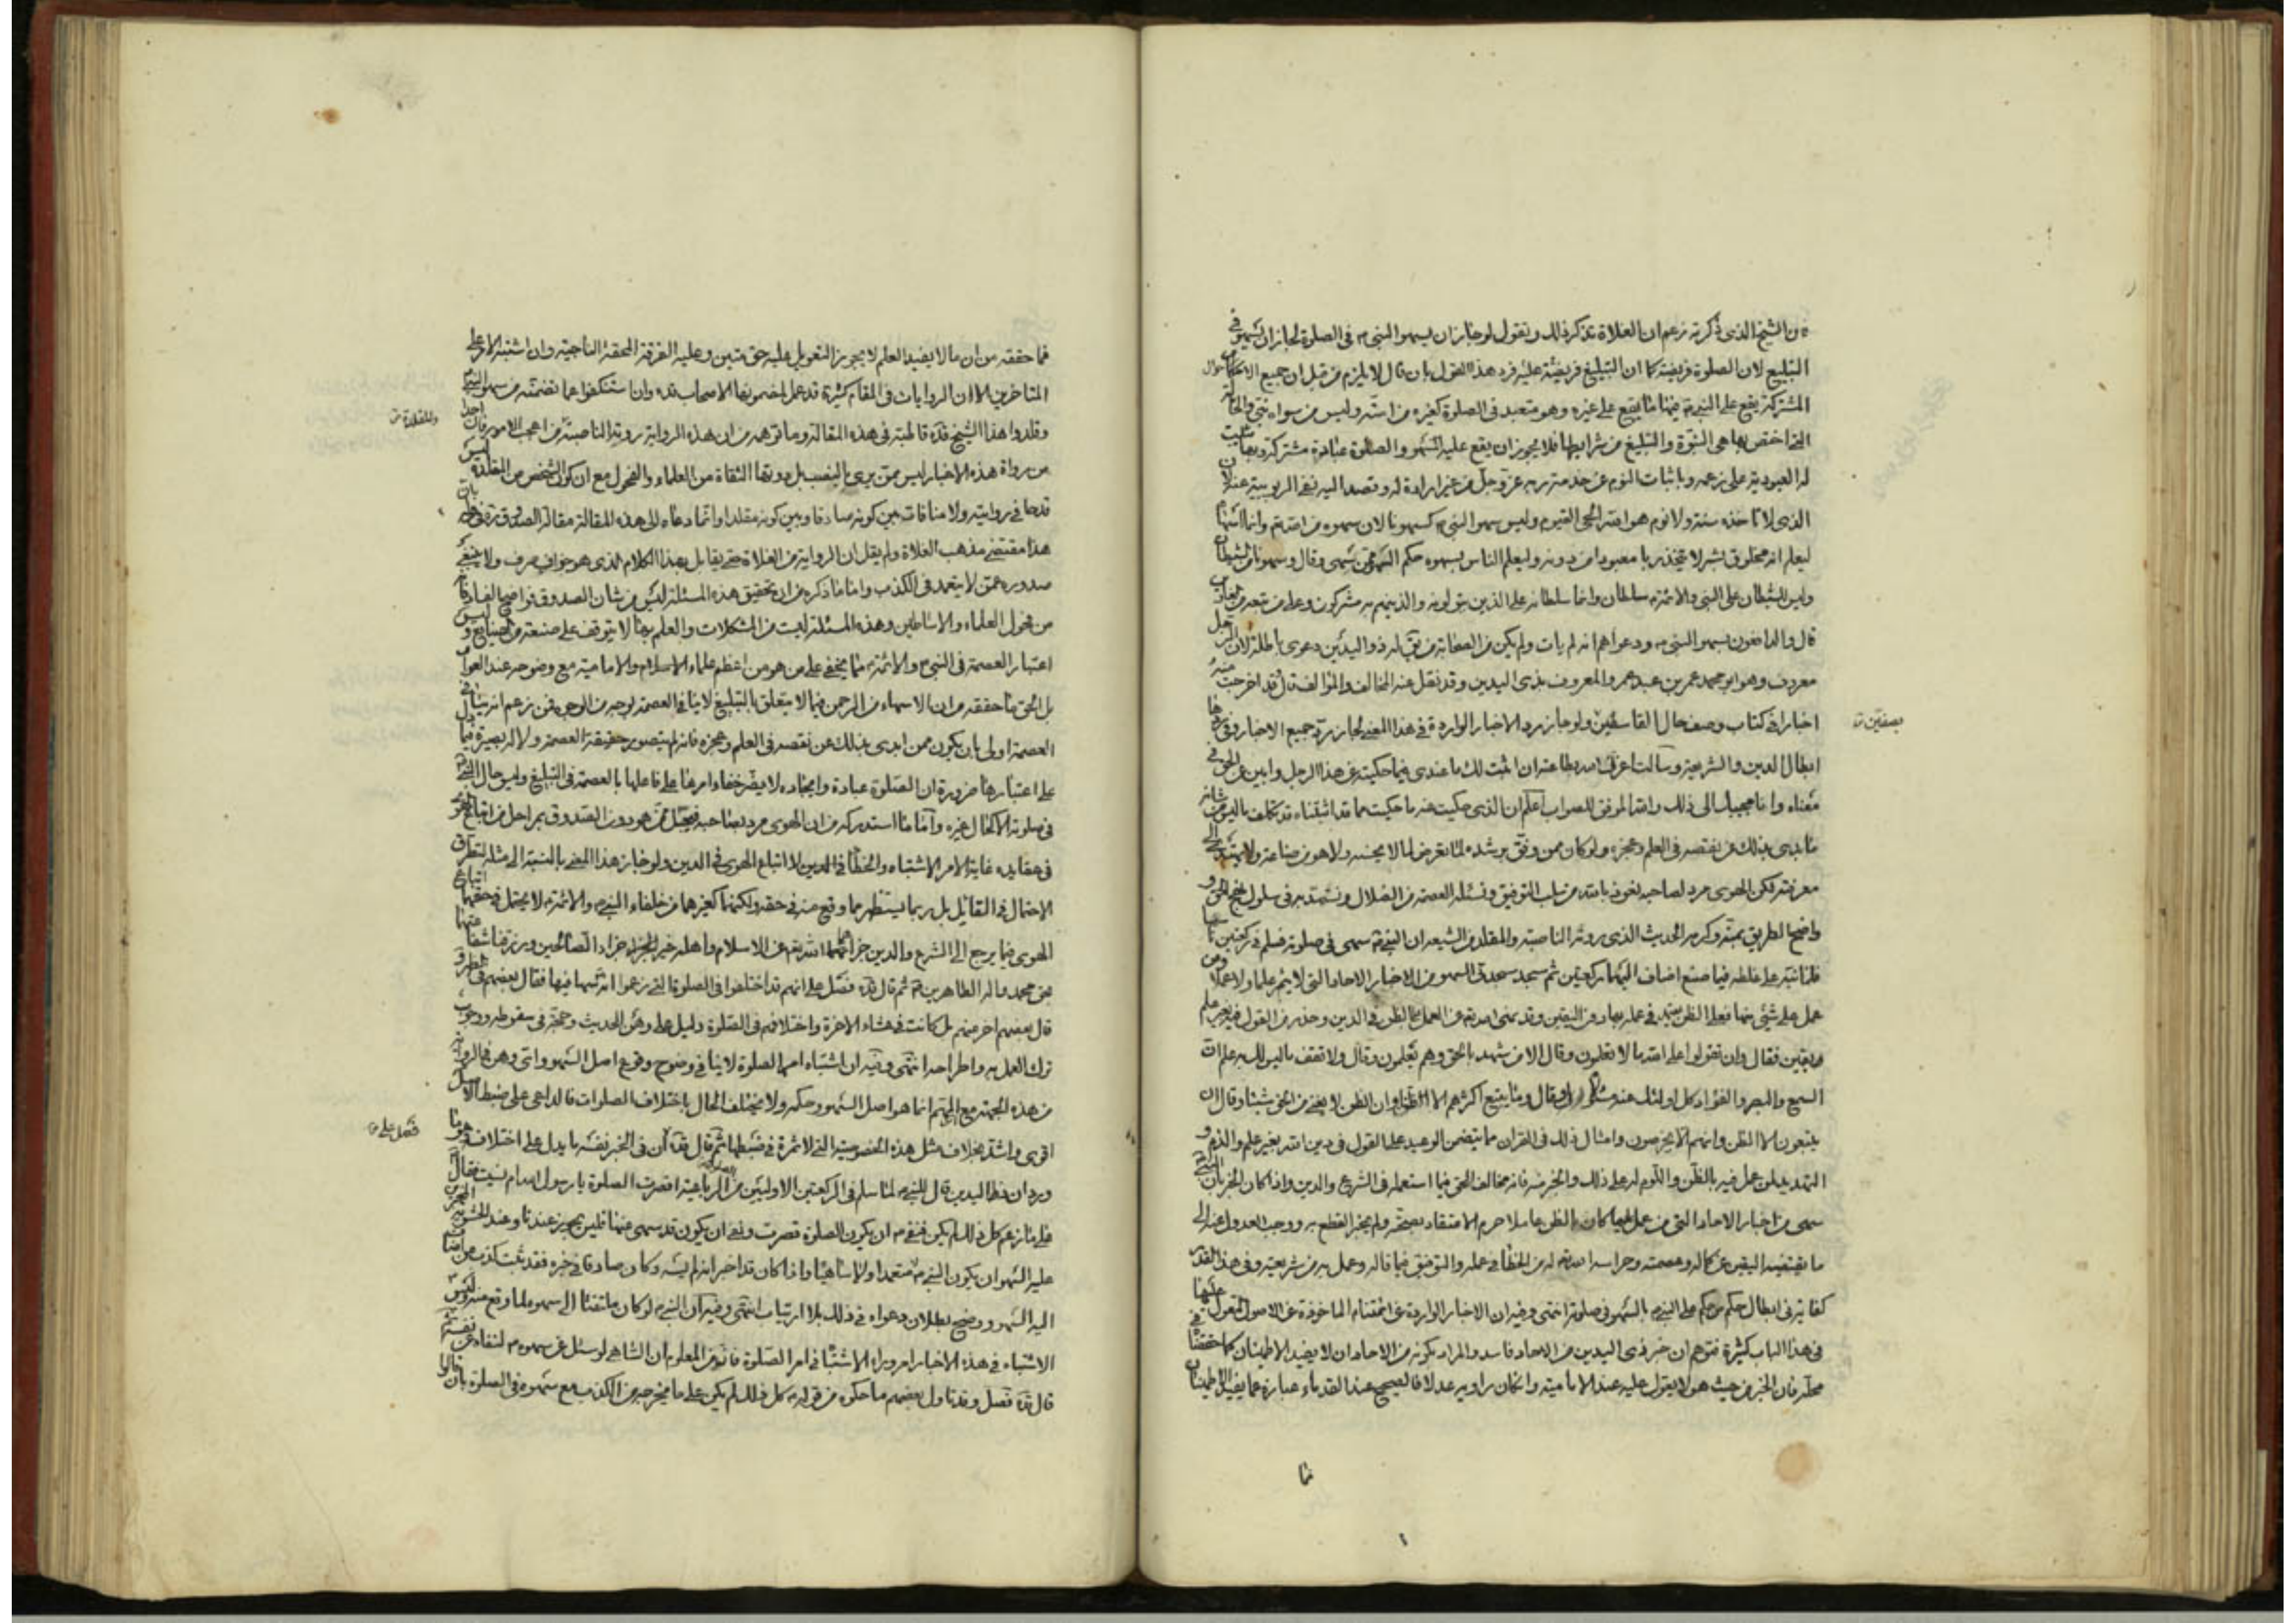 ان الشيخ الذي ذكرته زعم ان الغلاة تنكر ذلك وتقول لو جاز ان يسهو النبي ص في الصلوة لجاز ان يسهو في
التبليغ لان الصلوة فريضة كما ان التبليغ فريضة عليه فرد هذا القول بان قال لا يلزم من قبل ان جميع الاحوال
المشتركة يقع على النبي ص فيها ما يقع على غيره وهو متعبد في الصلوة كغيره من امته وليس من سواه نبي والحالة
التي اختص بها هي النبوة والتبليغ من شرايطها فلا يجوز ان يقع عليه السهو والصلوة عبادة مشتركة وبها تثبت
له العبودية على زعمه وباثبات النوم عن خدمة ربه عز وجل من غير ارادة له وقصد اليه نفي الربوبية عنه لان
الذي لا تاخذه سنة ولا نوم هو الله الحي القيوم وليس سهو النبي ص كسهونا لان سهوه من الله تع وانما اسهاه
ليعلم انه مخلوق بشر لا يتخذ ربا معبودا من دونه وليعلم الناس بسهوه حكم السهو متى سهى وقال وسهونا من الشيطان
وليس للشيطان على النبي والائمة سلطان وانما سلطانه على الذين يتولونه والذينهم به مشركون وعلى من تبعه من الغاوين
قال والدافعون لسهو النبي ص ودعواهم انه لم يات ولم يكن من الصحابة من يق له ذو اليدين دعوى باطلة لان الرجل
معروف وهو ابو محمد عمر بن عبد عمر والمعروف بذي اليدين وقد نقل عنه المخالف والمؤالف قال وقد اخرجت منه
اخبارا في كتاب وصف حال القاسطين ولو جاز رد الاخبار الواردة في هذا المعنى لجاز رد جميع الاخبار وفي ردها
بصفين
ابطال الدين والشريعة وسالت اعزك الله بطاعته ان اثبت لك ما عندي فيما حكيته عن هذا الرجل وابين عن الحق في
معناه وانا مجيبك الى ذلك والله الموفق للصواب اعلم ان الذي حكيت عنه ما حكيت مما قد اثبتناه قد تكلف ما ليس من شانه
فابدى بذلك عن نقصه في العلم وعجزه ولو كان ممن وفق لرشده لما تعرض لما لا يحسنه ولا هو من صناعته ولا يهتدي الى
معرفته لكن الهوى مرد لصاحبه نعوذ بالله من سلب التوفيق ونسئله العصمة من الضلال ونستهديه في سلوك نهج الحق و
واضح الطريق بمنه وكرمه الحديث الذي روته الناصبة والمقلدة من الشيعة ان النبي ص سهى في صلوته فسلم في ركعتين ناسيا
فلما نبه على غلطه فيما صنع اضاف اليهما ركعتين ثم سجد سجدتي السهو من الاخبار الاحاد التي لا يثمر علما ولا عملا ومن
عمل على شئ منها فعلى الظن يعتمد في عمله بها دون اليقين وقد نهى الله تع عن العمل على الظن في الدين وحذر من القول فيه بغير علم
ويقين فقال وان تقولوا على الله ما لا تعلمون وقال الا من شهد بالحق وهم يعلمون وقال ولا تقف ما ليس لك به علم ان
السمع والبصر والفؤاد كل اولئك كان عنه مسئولا وقال وما يتبع اكثرهم الا ظنا وان الظن لا يغني من الحق شيئا وقال ان
يتبعون الا الظن وان هم الا يخرصون وامثال ذلك في القران مما يتضمن الوعيد على القول في دين الله بغير علم والذم و
التهديد لمن عمل فيه بالظن واللوم له على ذلك والخبر عنه فانه مخالف الحق فيما استعمله في الشرع والدين واذا كان الخبر بان النبي ص
سهى من اخبار الاحاد التي من عمل عليها كان بالظن عاملا حرم الاعتقاد بصحته ولم يجز القطع به ووجب العدول عنه الى
ما يقتضيه اليقين عن كماله وعصمته وحراسة الله تع له من الخطا في عمله والتوفيق فيما قاله وعمل به من شريعته وفي هذا القدر
كفاية في ابطال حكم من حكم على النبي ص بالسهو في صلوته انتهى وفيه ان الاخبار الواردة عن ائمتنا ع الماخوذة عن الاصول المعول عليها
في هذا الباب كثيرة فتوهم ان خبر ذي اليدين من الاحاد فاسد والمراد بكونه من الاحاد ان لا يفيد الاطمينان كما حققنا في
محله فان الخبر من حيث هو لا يعول عليه عند الامامية وان كان راويه عدلا فالصحيح عند القدماء عبارة عما يفيد الاطمينان
فما
فما حققه من ان ما لا يفيد العلم لا يجوز التعويل عليه حق متين وعليه الفرقة المحقة الناجية وان اشتبه الامر على
المتاخرين الا ان الروايات في المقام كثيرة قد عمل بمضمونها الاصحاب قده وان استنكفوا عما تضمنه من سهو النبي ص
وقلدوا هذا الشيخ قده قاطبة في هذه المقالة وما توهمه من ان هذه الرواية روته الناصبة من اعجب الامور فان احدا
والمقلدة
من رواة هذه الاخبار ليس ممن يرمى بالنصب بل رويها الثقاة من العلماء والفحول مع ان كون الشخص من المقلدة ليس
قدحا في روايته ولا منافات بين كونه صادقا وبين كونه مقلدا وانما دعاه الى هذه المقالة مقالة الصدوق
هذا مقتضى مذهب الغلاة ولم يقل ان الرواية من الغلاة حتى يقابل بهذا الكلام الذي هو جزاف صرف ولا ينبغي
صدوره عمن لا يتعمد في الكذب واما ما ذكره من ان تحقيق هذه المسئلة ليس من شان الصدوق فواضح الفساد فانه
من فحول العلماء والاساطين وهذه المسئلة ليست من المشكلات والعلم بها لا يتوقف على صنعة من الصنايع و ليس
اعتبار العصمة في النبي ص والائمة ع مما يخفى على من هو من اعظم علماء الاسلام والامامية مع وضوحه عند العوام
بل الحق ما حققه من ان الاسهاء من الرحمن فيما لا يتعلق بالتبليغ لا ينافي العصمة لوجه من الوجوه فمن زعم انه ينافي
العصمة اولى بان يكون ممن ابدى بذلك عن نقصه في العلم وعجزه فانه لم يتصور حقيقة العصمة ولا له بصيرة
على اعتبارها ضرورة ان الصلوة عبادة وايجاده لا يضر خفاء امرها على فاعلها بالعصمة في التبليغ وليس حال النبي ص
في صلوته الا كحال غيره واما ما استدركه من ان الهوى مرد بصاحبه فيجل عمن هو دون الصدوق بمراحل من اتباع الهوى
في عقايده غاية الامر الاشتباه والخطا في الدين لا اتباع الهوى في الدين ولو جاز هذا المعنى بالنسبة الى مثله لتطرق
الاحتمال في القائل بل ربما يستظهر مما وقع منه في حقه ولكنهما كغيرهما من خلفاء النبي ص والائمة ع لا يحتمل في حقهما اتباع
الهوى فيما يرجع الى الشرع والدين جزاهما الله تع عن الاسلام واهله خير الجزاء جزاء الصالحين ورزقنا شفاعتهما
عن محمد واله الطاهرين ع ثم قال قده فصل على انهم قد اختلفوا في الصلوة التي زعموا انه سها فيها فقال بعضهم في الظهر و
قال بعضهم اخر منهم بل كانت في عشاء الاخرة واختلافهم في الصلوة دليل على وهن الحديث وحجة في سقوطه ووجوب
ترك العمل به واطراحه انتهى وفيه ان اشتباه امر الصلوة لا ينافي وضوح وقوع اصل السهو وانى وهن في الرواية
من هذه الجهة مع ان المهتم انما هو اصل السهو وحكمه ولا يختلف الحال باختلاف الصلوات فالداعي على ضبط الاصل
اقوى واشد بخلاف مثل هذه الخصوصية التي لا ثمرة في ضبطها ثم قال قده ان في الخبر نفسه ما يدل على اختلافه وهو ما
فصل على
ورد ان ذا اليدين قال للنبي ص لما سلم في الركعتين الاوليين من الصلوة الرباعية اقصرت الصلوة يا رسول الله ام نسيت فقال ص
على ما زعم كل ذلك لم يكن فنفى ص ان يكون الصلوة قصرت ونفى ان يكون قد سهى عنها فليس يجوز عندنا وعند الحشوية المجيزين
عليه السهو ان يكون النبي ص متعمدا ولا ساهيا واذا كان قد اخبر انه لم يسه وكان صادقا في خبره فقد ثبت كذب من اضاف
اليه السهو ووضح بطلان دعواه في ذلك بلا ارتياب انتهى وفيه ان النبي ص لو كان ملتفتا الى سهوه لما وقع منه وليس
الاشتباه في هذه الاخبار امر وراء الاشتباه في امر الصلوة فانه من المعلوم ان الساهي لو سئل عن سهوه لنفاه عن نفسه
قال قده فصل وقد تاول بعضهم ما حكوه من قوله ص كل ذلك لم يكن على ما يخرجه من الكذب مع سهوه في الصلوة بان قالوا